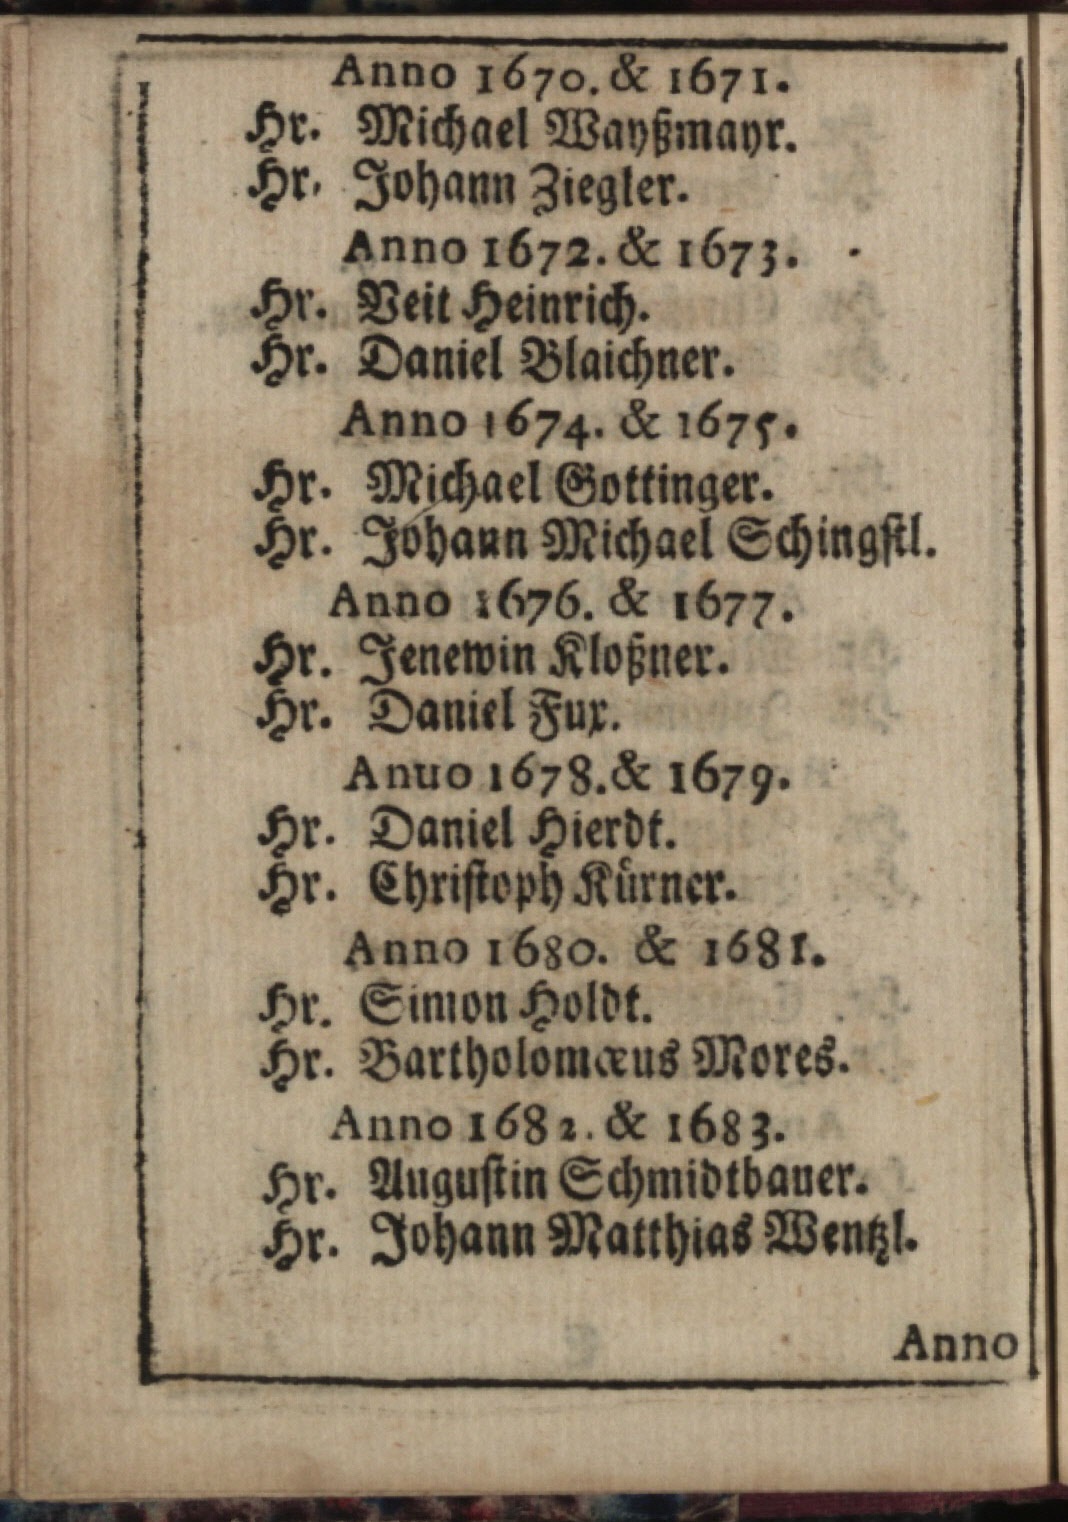 Anno 1670. & 1671.
Hr. Michael Wayßmayr.
Hr. Johann Ziegler.
Anno 1672. & 1673.
Hr. Veit Heinrich.
Hr. Daniel Blaichner.
Anno 1674. & 1675.
Hr. Michael Gottinger.
Hr. Johann Michael Schingstl.
Anno 1676. & 1677.
Hr. Jenewin Kloßner.
Hr. Daniel Fux.
Anuo 1678. & 1679.
Hr. Daniel Hierdt.
Hr. Christoph Kürner.
Anno 1680. & 1681.
Hr. Simon Holdt.
Hr. Bartholomæus Mores.
Anno 1682. & 1683.
Hr. Augustin Schmidtbauer.
Hr. Johann Matthias Wentzl.
Anno